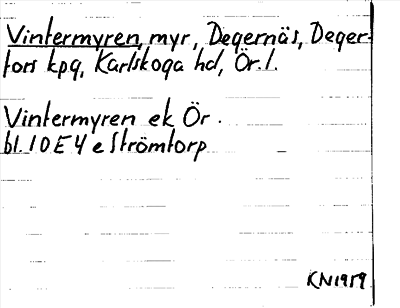 Vintermyren, myr, Degernäs, Deger-
fors kpg, Karlskoga hd, Ör. l.
Vintermyren ek Ör.
bl. 10 E 4 e Strömtorp
KN1959